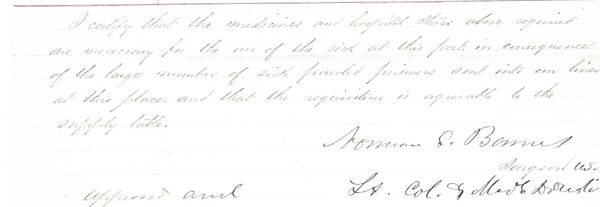 I certify that the medicines and hospital stores above required
are necessary for the use of the sick at this post in consequence
of the large number of sick paroled prisoners sent into our lines
at this place and that the requisition is agreeable to the
supply table.
Norman S. Barnes
Surgeon U.S.
Lt. Col. & Med
Approved and